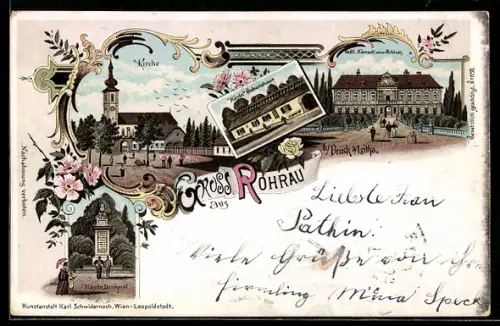 Kirche
Gräfl. Harrach'sches Schloss
Haydn's Geburtshaus
b/ Bruck a/Leitha.
Gruss
aus
Rohrau
Nachahmung verboten.
Haydn Denkmal
Kunstanstalt Karl Schwidernoch, Wien-Leopoldstadt.
Liebste Frau
Pathin!
Viele Grüße von Ihrer
Firmling Mina Speck